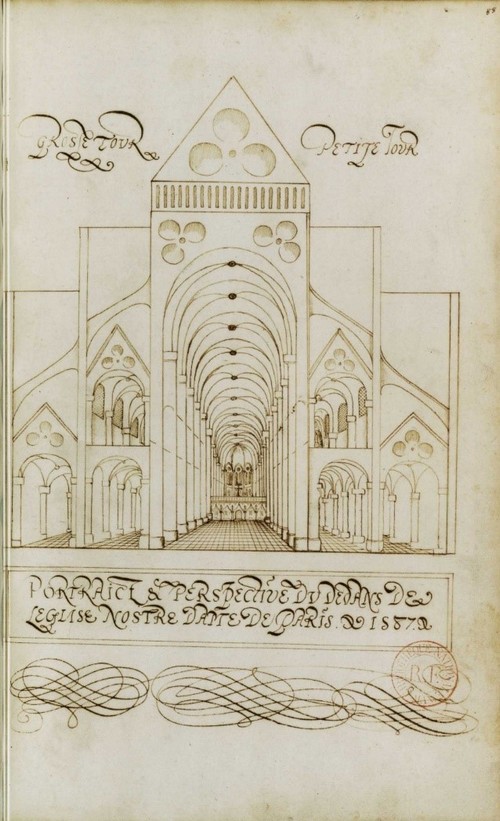 GROSSE TOUR
PETITE TOUR
PORTRAICT & PERSPECTIVE DU DEDANS DE
LEGLISE NOSTRE DAME DE PARIS. 1587.